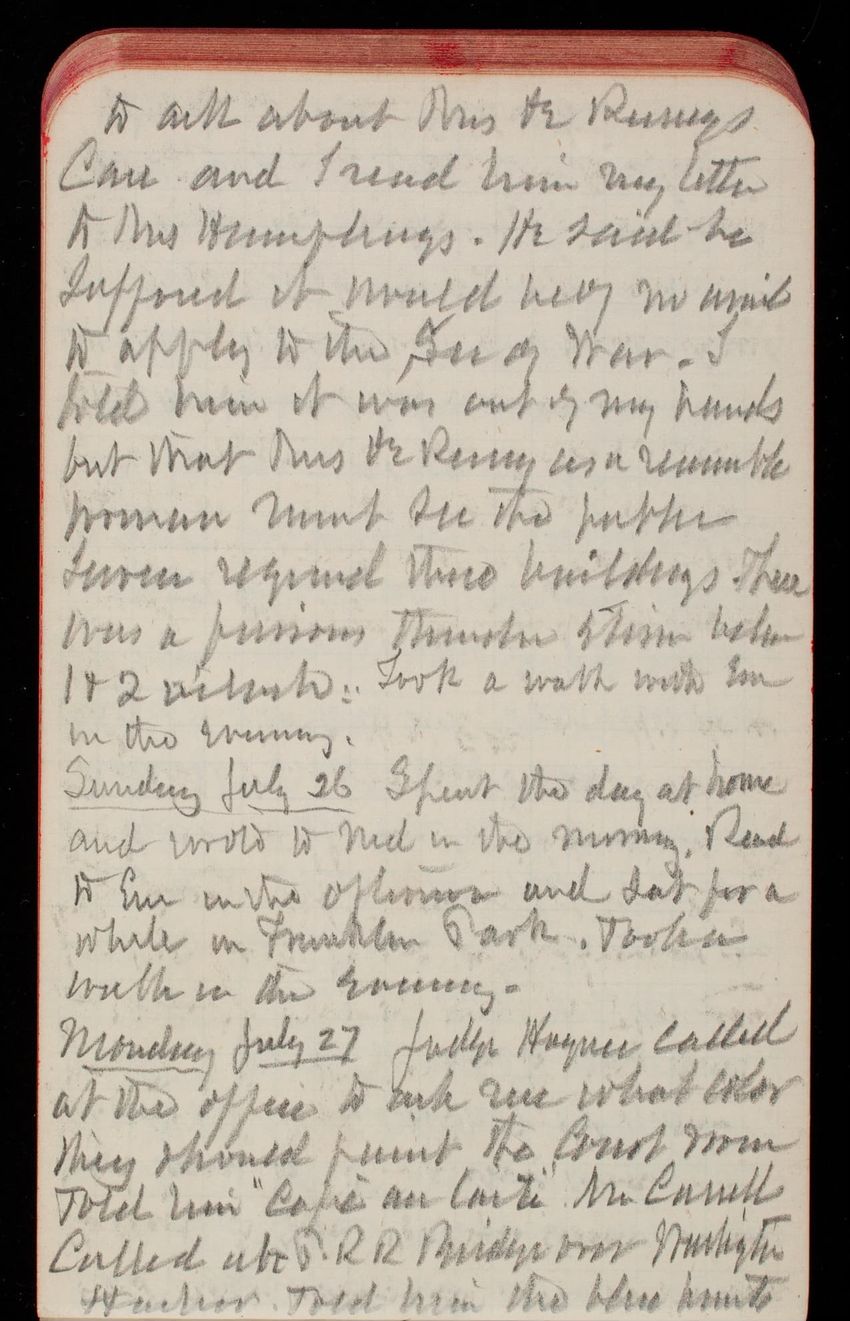 to ask about Mrs
Case and I read him my letter
to Mrs Humphreys. He said he
supposed it would be of no avail
to apply to the Sec of War. I
told him it was out of my hands
but that Mrs as a reasonable
woman must see the public
regard these buildings. There
was a furious thunder storm
1 & 2 o'clock. Took a walk with Em
in the evening.
Sunday July 26 Spent the day at home
and wrote to Ned in the morning. Read
to Em in the afternoon and sat for a
while in Franklin Park. Took a
walk in the evening.
Monday July 27 Judge Hagner called
at the office to ask me what color
they should paint the Court room
Told him "Café au lait". Mr Cassell
Called abt P. R R Bridge over Washington
Harbor. Told him the blue prints